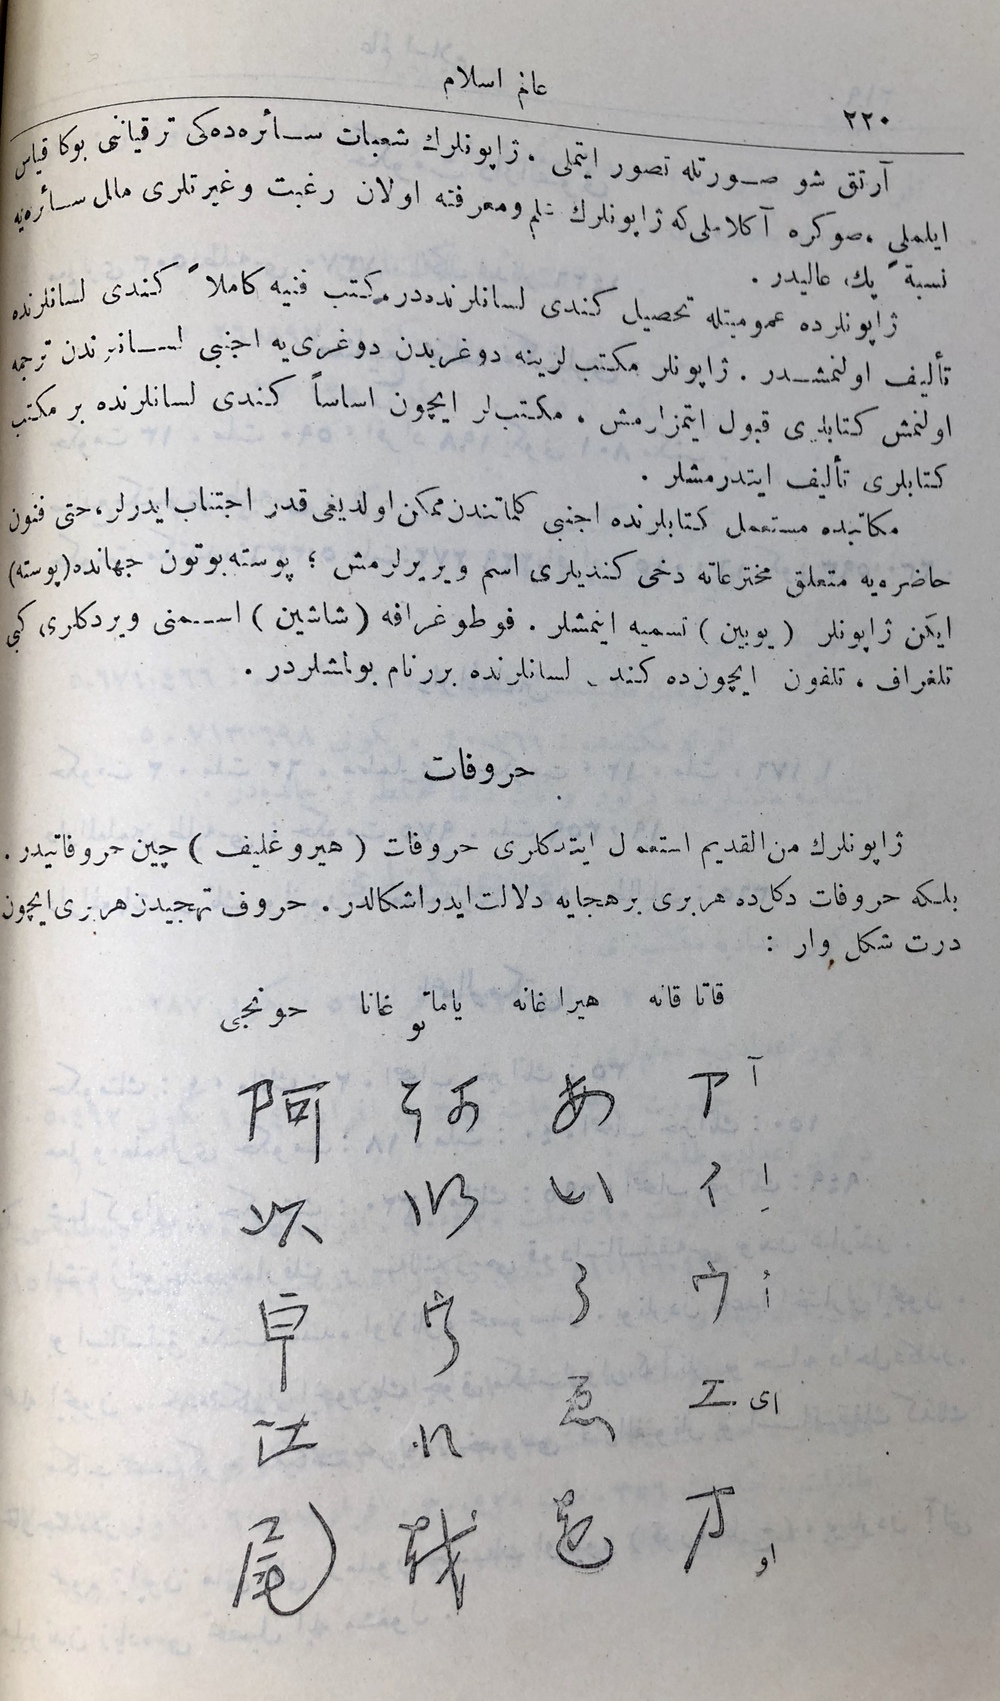 عالم اسلام
٢٢٠
آرتق شو صورتله تصور ايتملى . ژاپونلرك شعبات سائره‌ده‌كى ترقياتنى بوكا قياس
ايلملى ، صوكره آكلاملى كه ژاپونلرك علم ومعرفته اولان رغبت وغيرتلرى ملل سائره‌يه
نسبةً پك عاليدر .
ژاپونلرده عموميتله تحصيل كندى لسانلرنده‌در . كتب فنيه كاملاً كندى لسانلرنده
تأليف اولنمشدر . ژاپونلر مكتب لرينه دوغريدن دوغرى‌يه اجنبى لسانلرندن ترجمه
اولنمش كتابلرى قبول ايتمزلرمش . مكتب‌لر ايچون اساساً كندى لسانلرنده بر مكتب
كتابلرى تأليف ايتدرمشلر .
مكاتبده مستعمل كتابلرنده اجنبى كلماتندن ممكن اولديغى قدر اجتناب ايدرلر ، حتى فنون
حاضره‌يه متعلق مخترعاته دخى كنديلرى اسم ويريرلرمش ؛ پوسته بوتون جهانده (پوسته)
ايكن ژاپونلر ( يوبين ) تسميه ايتمشلر . فوطوغرافه ( شاشين ) اسمنى ويردكلرى كبى
تلغراف ، تلفون ايچون‌ده كندى لسانلرنده برر نام بولمشلردر .
حروفات
ژاپونلرك من القديم استعمال ايتدكلرى حروفات ( هيروغليف ) چين حروفاتيدر .
بلكه حروفات دكل‌ده هربرى برهجايه دلالت ايدر اشكالدر . حروف تهجيدن هربرى ايچون
درت شكل وار :
قاتا قانه هيرا غانه ياماتو غانا حونجى
آ ア あ 阿
اِ イ い 以
اُ ウ う
اى エ ゑ 江
او オ 尾